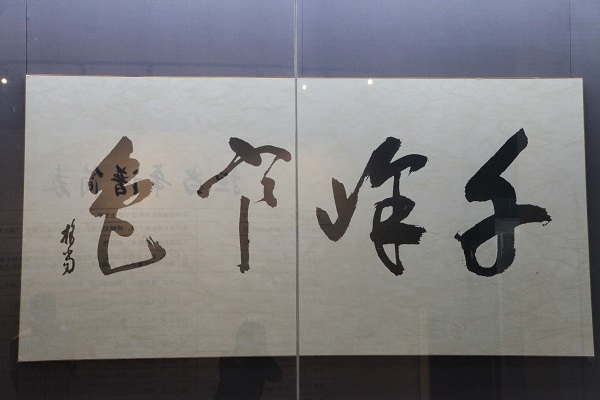 千峰翠色